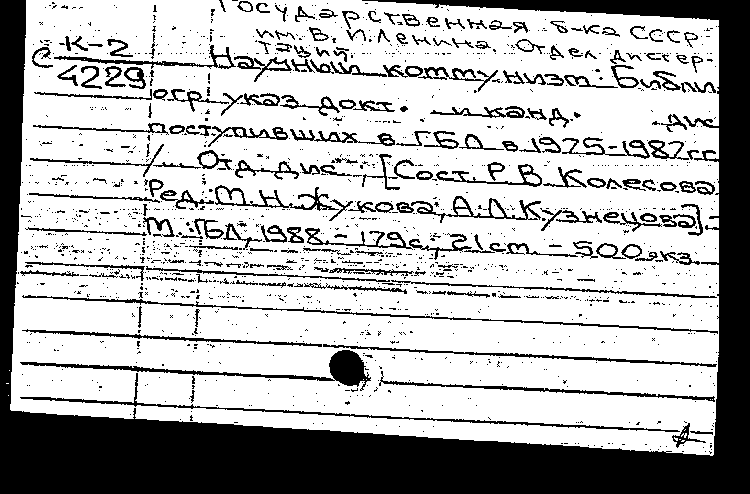 Государственная б-ка СССР
им. В. И. Ленина. Отдел диссер-
таций.
К-2
С 4229
Научный коммунизм: Библи
огр. указ докт. и канд. дис
поступивших в ГБЛ в 1975-1987гг
/... Отд. дис ; [Сост. Р. В. Колесова
Ред. М. Н. Жукова, А. Л. Кузнецова].-
М.: ГБЛ, 1988. - 179с., 21 см. - 500экз.